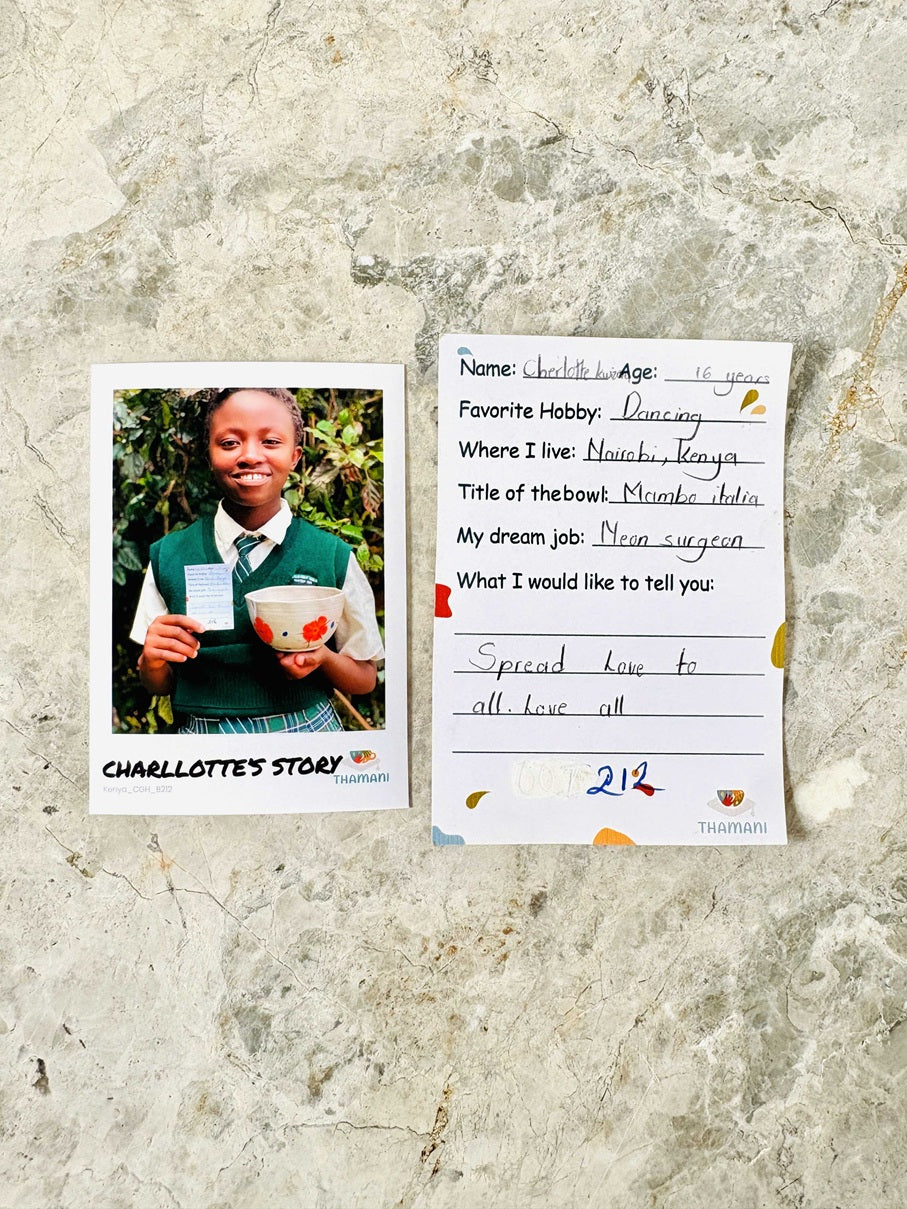 CHARLLOTTE'S STORY
THAMANI
Kenya_CGH_B212
Name: Cherlotte Age: 16 years
Favorite Hobby: Dancing
Where I live: Nairobi, Kenya
Title of thebowl: Mambo italia
My dream job: Neon surgeon
What I would like to tell you:
Spread Love to
all. Love all
212
THAMANI